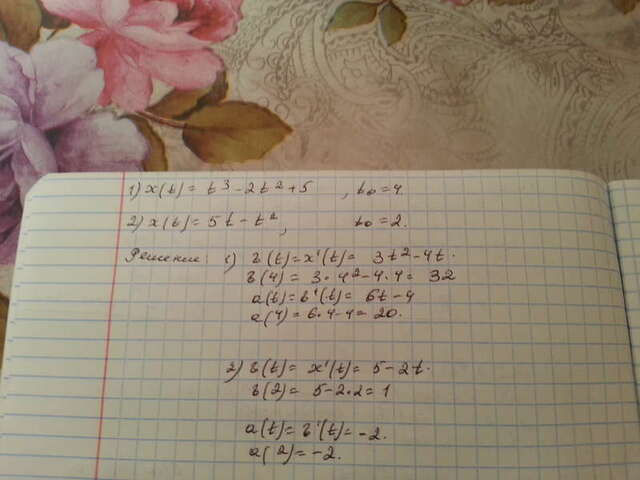 1) x(t) = t³ - 2t² + 5 , t₀ = 4.
2) x(t) = 5t - t², t₀ = 2.
Решение: 1) v(t) = x'(t) = 3t² - 4t.
v(4) = 3 · 4² - 4 · 4 = 32
a(t) = v'(t) = 6t - 4
a(4) = 6·4-4 = 20.
2) v(t) = x'(t) = 5 - 2t.
v(2) = 5-2·2 = 1
a(t) = v'(t) = -2.
a(2) = -2.